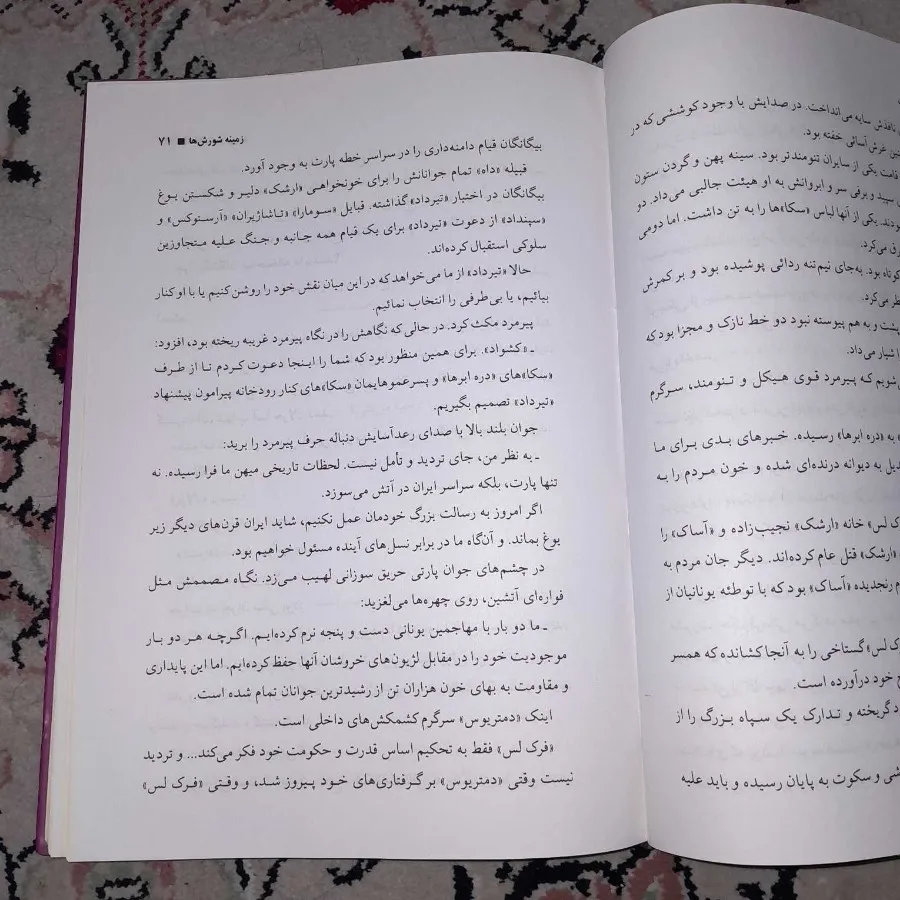 نافذش سایه می‌انداخت. در صدایش با وجود کوششی که در
غرش آسائی خفته بود.
قامت یکی از سایران تنومندتر بود. سینه پهن و گردن ستون
سپید و برفی سر و ابروانش به او هیئت جالبی می‌داد. دو
بودند. یکی از آنها لباس «سکا»ها را به تن داشت. اما دومی
می‌کرد.
کوتاه بود. به‌جای نیم‌تنه ردائی پوشیده بود و بر کمرش
نظر می‌کرد.
پشت و به هم پیوسته نبود دو خط نازک و مجزا بود که
شیار می‌داد.
می‌شویم که پیرمرد قوی هیکل و تنومند، سرگرم
به «دره ابرها» رسیده. خبرهای بدی برای ما
به دیوانه درنده‌ای شده و خون مردم را به
لس» خانه «ارشک» نجیب‌زاده و «آساک» را
«ارشک» قتل عام کرده‌اند. دیگر جان مردم به
رنجدیده «آساک» بود که با توطئه یونانیان از
لس» گستاخی را به آنجا کشانده که همسر
خود درآورده است.
گریخته و تدارک یک سپاه بزرگ را از
و سکوت به پایان رسیده و باید علیه
زمینه شورش‌ها ■ ۷۱
بیگانگان قیام دامنه‌داری را در سراسر خطه پارت به وجود آورد.
قبیله «داه» تمام جوانانش را برای خونخواهی «ارشک» دلیر و شکستن یوغ
بیگانگان در اختیار «تیرداد» گذاشته. قبایل «سومارا» «تاشاژیران» «آرستوکس» و
«سپنداد» از دعوت «تیرداد» برای یک قیام همه جانبه و جنگ علیه متجاوزین
سلوکی استقبال کرده‌اند.
حالا «تیرداد» از ما می‌خواهد که در این میان نقش خود را روشن کنیم یا با او کنار
بیائیم، یا بی‌طرفی را انتخاب نمائیم.
پیرمرد مکث کرد. در حالی که نگاهش را در نگاه پیرمرد غریبه ریخته بود، افزود:
ـ «کشواد». برای همین منظور بود که شما را اینجا دعوت کردم تا از طرف
«سکا»های «دره ابرها» و پسرعموهایمان «سکا»های کنار رودخانه پیرامون پیشنهاد
«تیرداد» تصمیم بگیریم.
جوان بلند بالا با صدای رعدآسایش دنباله حرف پیرمرد را برید:
ـ به نظر من، جای تردید و تأمل نیست. لحظات تاریخی میهن ما فرا رسیده. نه
تنها پارت، بلکه سراسر ایران در آتش می‌سوزد.
اگر امروز به رسالت بزرگ خودمان عمل نکنیم، شاید ایران قرن‌های دیگر زیر
یوغ بماند. و آن‌گاه ما در برابر نسل‌های آینده مسئول خواهیم بود.
در چشم‌های جوان پارتی حریق سوزانی لهیب می‌زد. نگاه مصممش مثل
فواره‌ای آتشین، روی چهره‌ها می‌لغزید:
ـ ما دو بار با مهاجمین یونانی دست و پنجه نرم کرده‌ایم. اگرچه هر دو بار
موجودیت خود را در مقابل لژیون‌های خروشان آنها حفظ کرده‌ایم. اما این پایداری
و مقاومت به بهای خون هزاران تن از رشیدترین جوانان تمام شده است.
اینک «دمتریوس» سرگرم کشمکش‌های داخلی است.
«فرک لس» فقط به تحکیم اساس قدرت و حکومت خود فکر می‌کند... و تردید
نیست وقتی «دمتریوس» بر گرفتاری‌های خود پیروز شد، و وقتی «فرک لس»